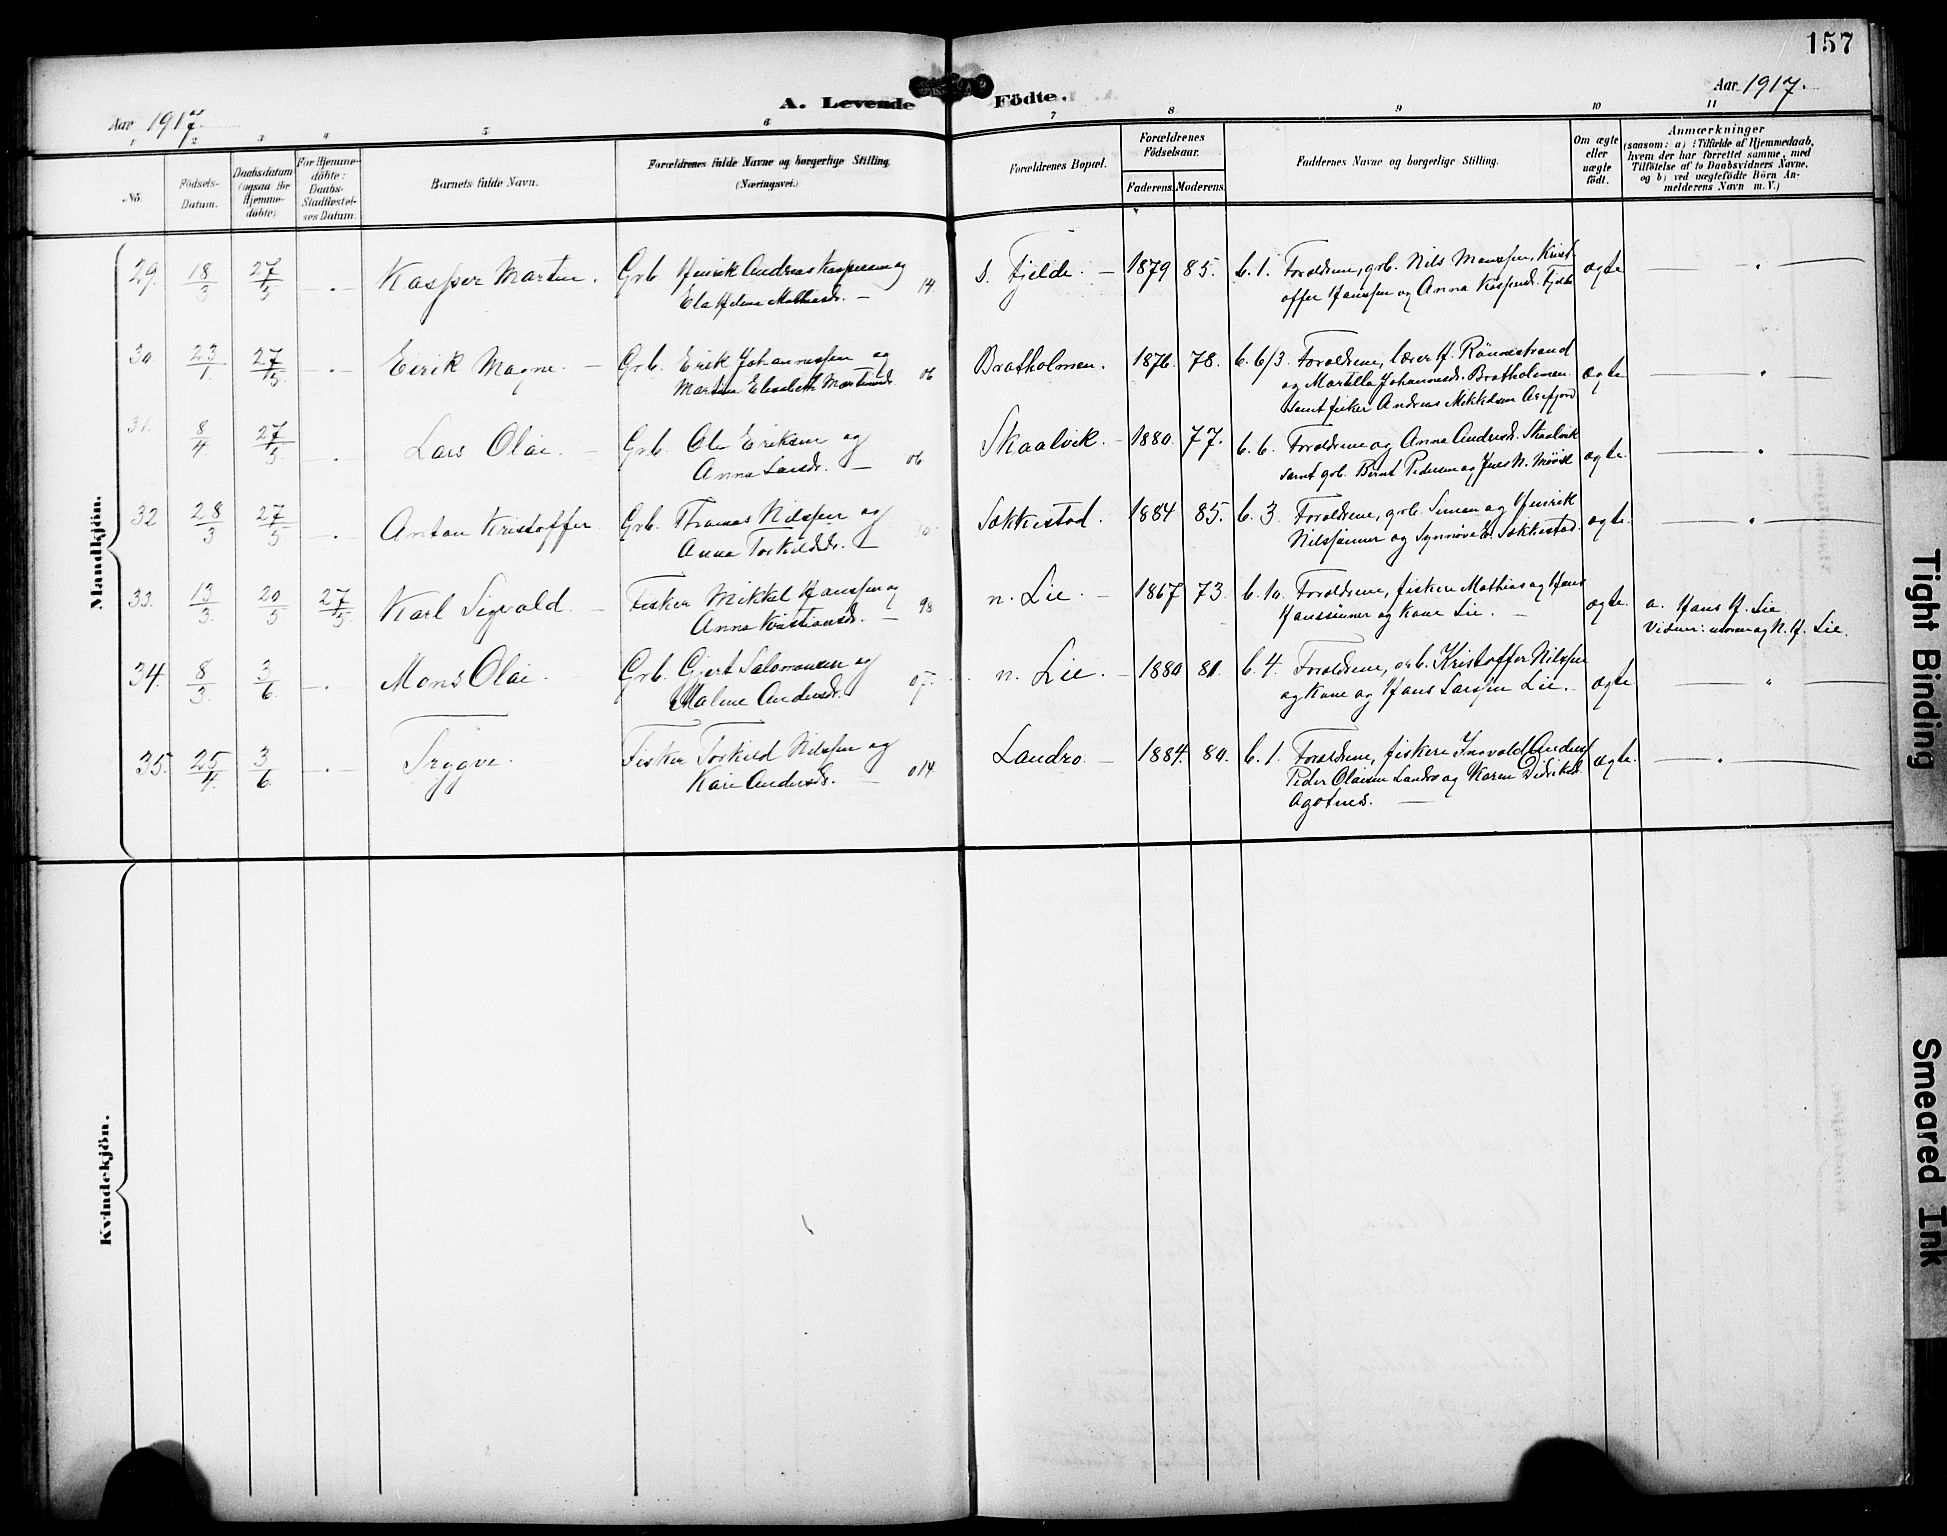 157
A. Levende Födte.
Aar 1917.
Aar 1917.
1 2 3 4 5 6 7 8 9 10 11
No.
Födsels-Datum.
Daabsdatum (ogsaa for Hjemme-döbte).
For Hjemme-döbte: Daabs-Stadfæstel-ses Datum.
Barnets fulde Navn.
Forældrenes fulde Navne og borgerlige Stilling. (Næringsvei.)
Forældrenes Bopæl.
Forældrenes Födselsaar.
Faderens. Moderens.
Faddernes Navne og borgerlige Stilling.
Om ægte eller uægte födt.
Anmærkninger
(saasom: a) i Tilfælde af Hjemmedaab, hvem der har forrettet samme, med Tilföielse af to Daabsvidners Navne, og b) ved uægtefödte Börn An-melderens Navn m. V.)
Mandkjön.
29. 18/3 27/5 Kasper Martin. Grb. Henrik Andreas Kaspersen og 14. s. Fjelde. 1879 85. b. 1. Forældrene, grb. Nils Monssen, Krist- ægte
Ela Helene Mathiasdr. offer Hanssen og Anna Kaspersd. Fjelde
30. 23/1 27/5. Eirik Magne. Grb. Erik Johannessen og 06 Bratholmen. 1876. 78. b. 6/3. Forældrene, lærer H. Rönnestrand ægte
Martha Elisabeth Martinusd. og Martella Johannesdr. Bratholmen
samt fisker Andreas Mikkelsen Arefjord
31. 8/4 27/5. Lars Olai. Grb. Ole Eriksen og 06 Skaalvik. 1880. 77. b. 6. Forældrene og Anna Andersdr. Skaalvik ægte.
Anna Larsdr. samt grb. Bernt Pedersen og Jens N.
32 28/3 27/5 Anton Kristoffer. Grb. Thomas Nilssen og Søkkestad. 1884 85. b. 3. Forældrene, grb. Simon og Henrik ægte.
Anna Torkildsdr. Nilssønner og Synnøve Søkkestad.
33. 13/3. 20/5 27/5. Karl Sigvald. Fisker Mikkel Hanssen og 98 n. Lie. 1867 73. b. 10. Forældrene, fiskere Mathias og Hans ægte. a. Hans H. Lie
Anna Kristiansdr. Hanssønner og Kone Lie. Vidner: moren og N. H. Lie.
34. 8/3. 3/6 Mons Olai. Grb. Gjert Salomonsen og 07. n. Lie. 1880 81. b. 4. Forældrene, grb. Kristoffer Nilssen ægte
Malene Andersdr. og Kone og Hans Larssen Lie.
35. 25/4. 3/6. Trygve. Fisker Torkild Nilssen og 014 Landro. 1884. 80. b. 1. Forældrene, fiskere Ingvald Anders. ægte.
Kari Andersdr. Peder Olaisen Landro og Karen Didriksd.
Agotnes.
Kvindekjön.
Tight Binding
Smeared Ink